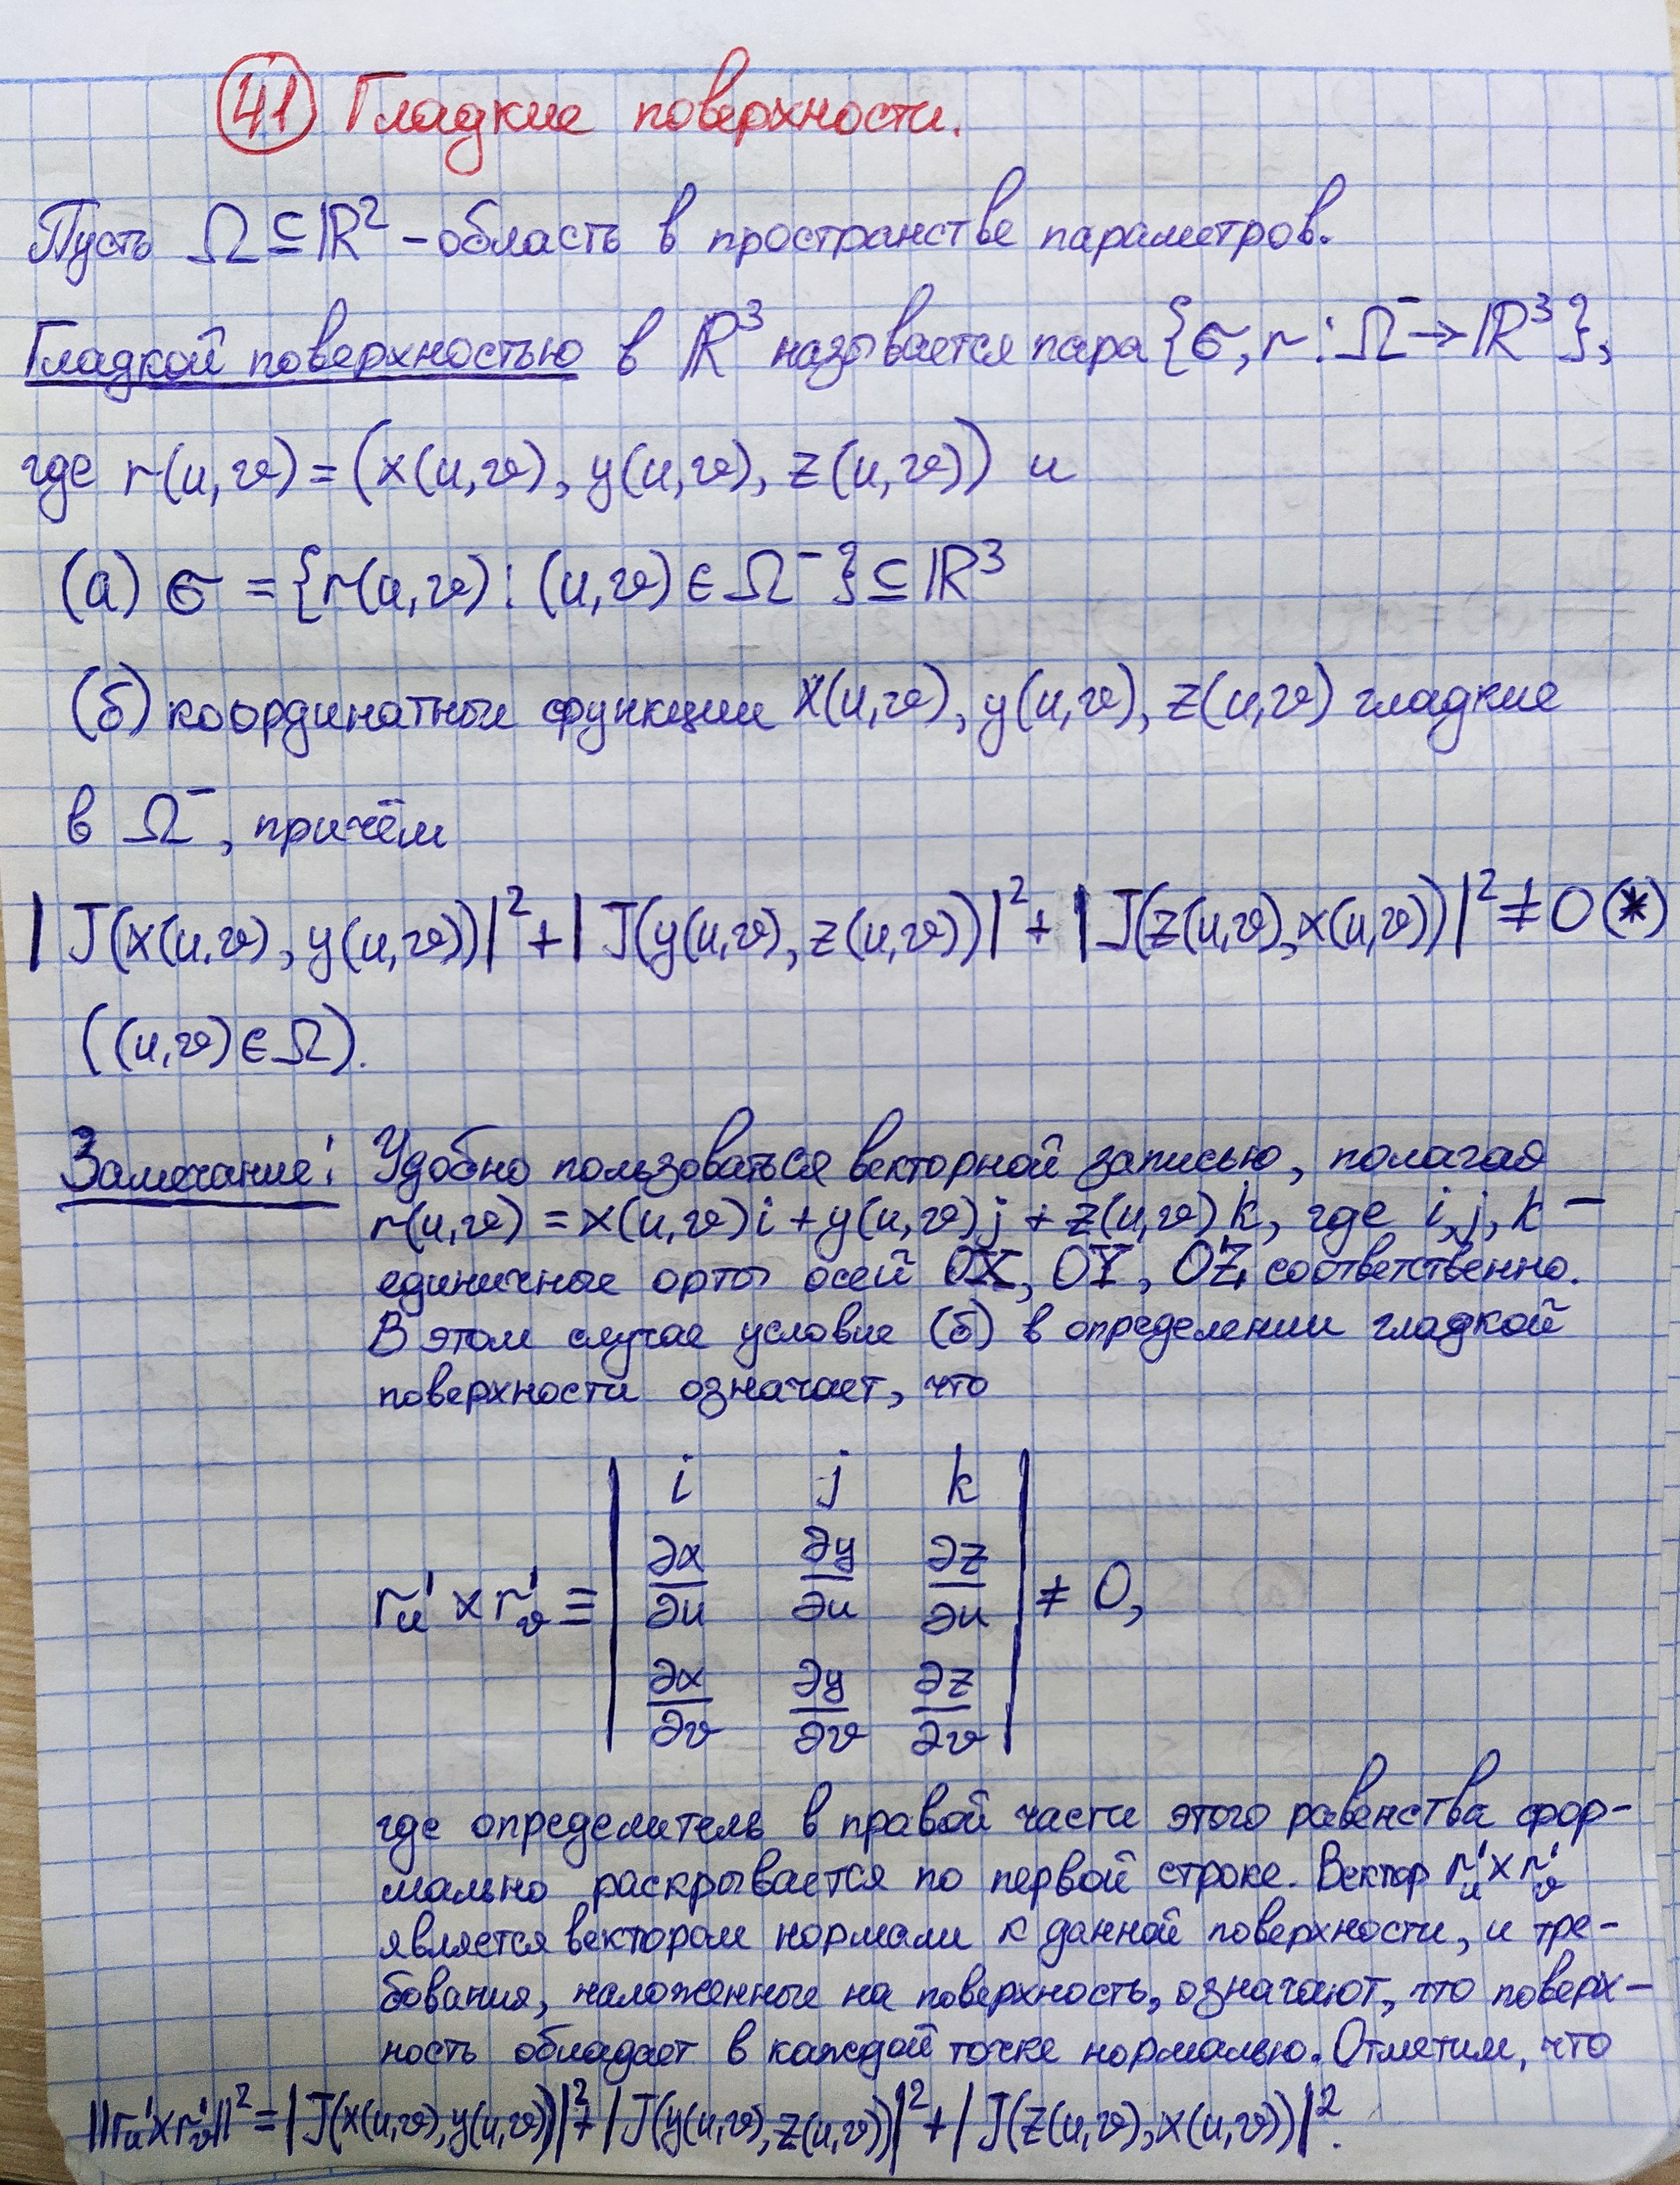 41 Гладкие поверхности.
Пусть Ω ⊆ ℝ² – область в пространстве параметров.
Гладкой поверхностью в ℝ³ называется пара {σ, r : Ω⁻ → ℝ³},
где r(u,v) = (x(u,v), y(u,v), z(u,v)) и
(а) σ = {r(u,v) : (u,v) ∈ Ω⁻} ⊆ ℝ³
(б) координатные функции x(u,v), y(u,v), z(u,v) гладкие
в Ω⁻, причём
|J(x(u,v), y(u,v))|² + |J(y(u,v), z(u,v))|² + |J(z(u,v), x(u,v))|² ≠ 0 (*)
((u,v) ∈ Ω).
Замечание: Удобно пользоваться векторной записью, полагая
r(u,v) = x(u,v)i + y(u,v)j + z(u,v)k, где i, j, k –
единичные орты осей OX, OY, OZ, соответственно.
В этом случае условие (б) в определении гладкой
поверхности означает, что
r'ᵤ × r'ᵥ ≡ | i j k |
| ∂x/∂u ∂y/∂u ∂z/∂u | ≠ 0,
| ∂x/∂v ∂y/∂v ∂z/∂v |
где определитель в правой части этого равенства фор-
мально раскрывается по первой строке. Вектор r'ᵤ × r'ᵥ
является вектором нормали к данной поверхности, и тре-
бования, наложенные на поверхность, означают, что поверх-
ность обладает в каждой точке нормалью. Отметим, что
||r'ᵤ × r'ᵥ||² = |J(x(u,v), y(u,v))|² + |J(y(u,v), z(u,v))|² + |J(z(u,v), x(u,v))|².